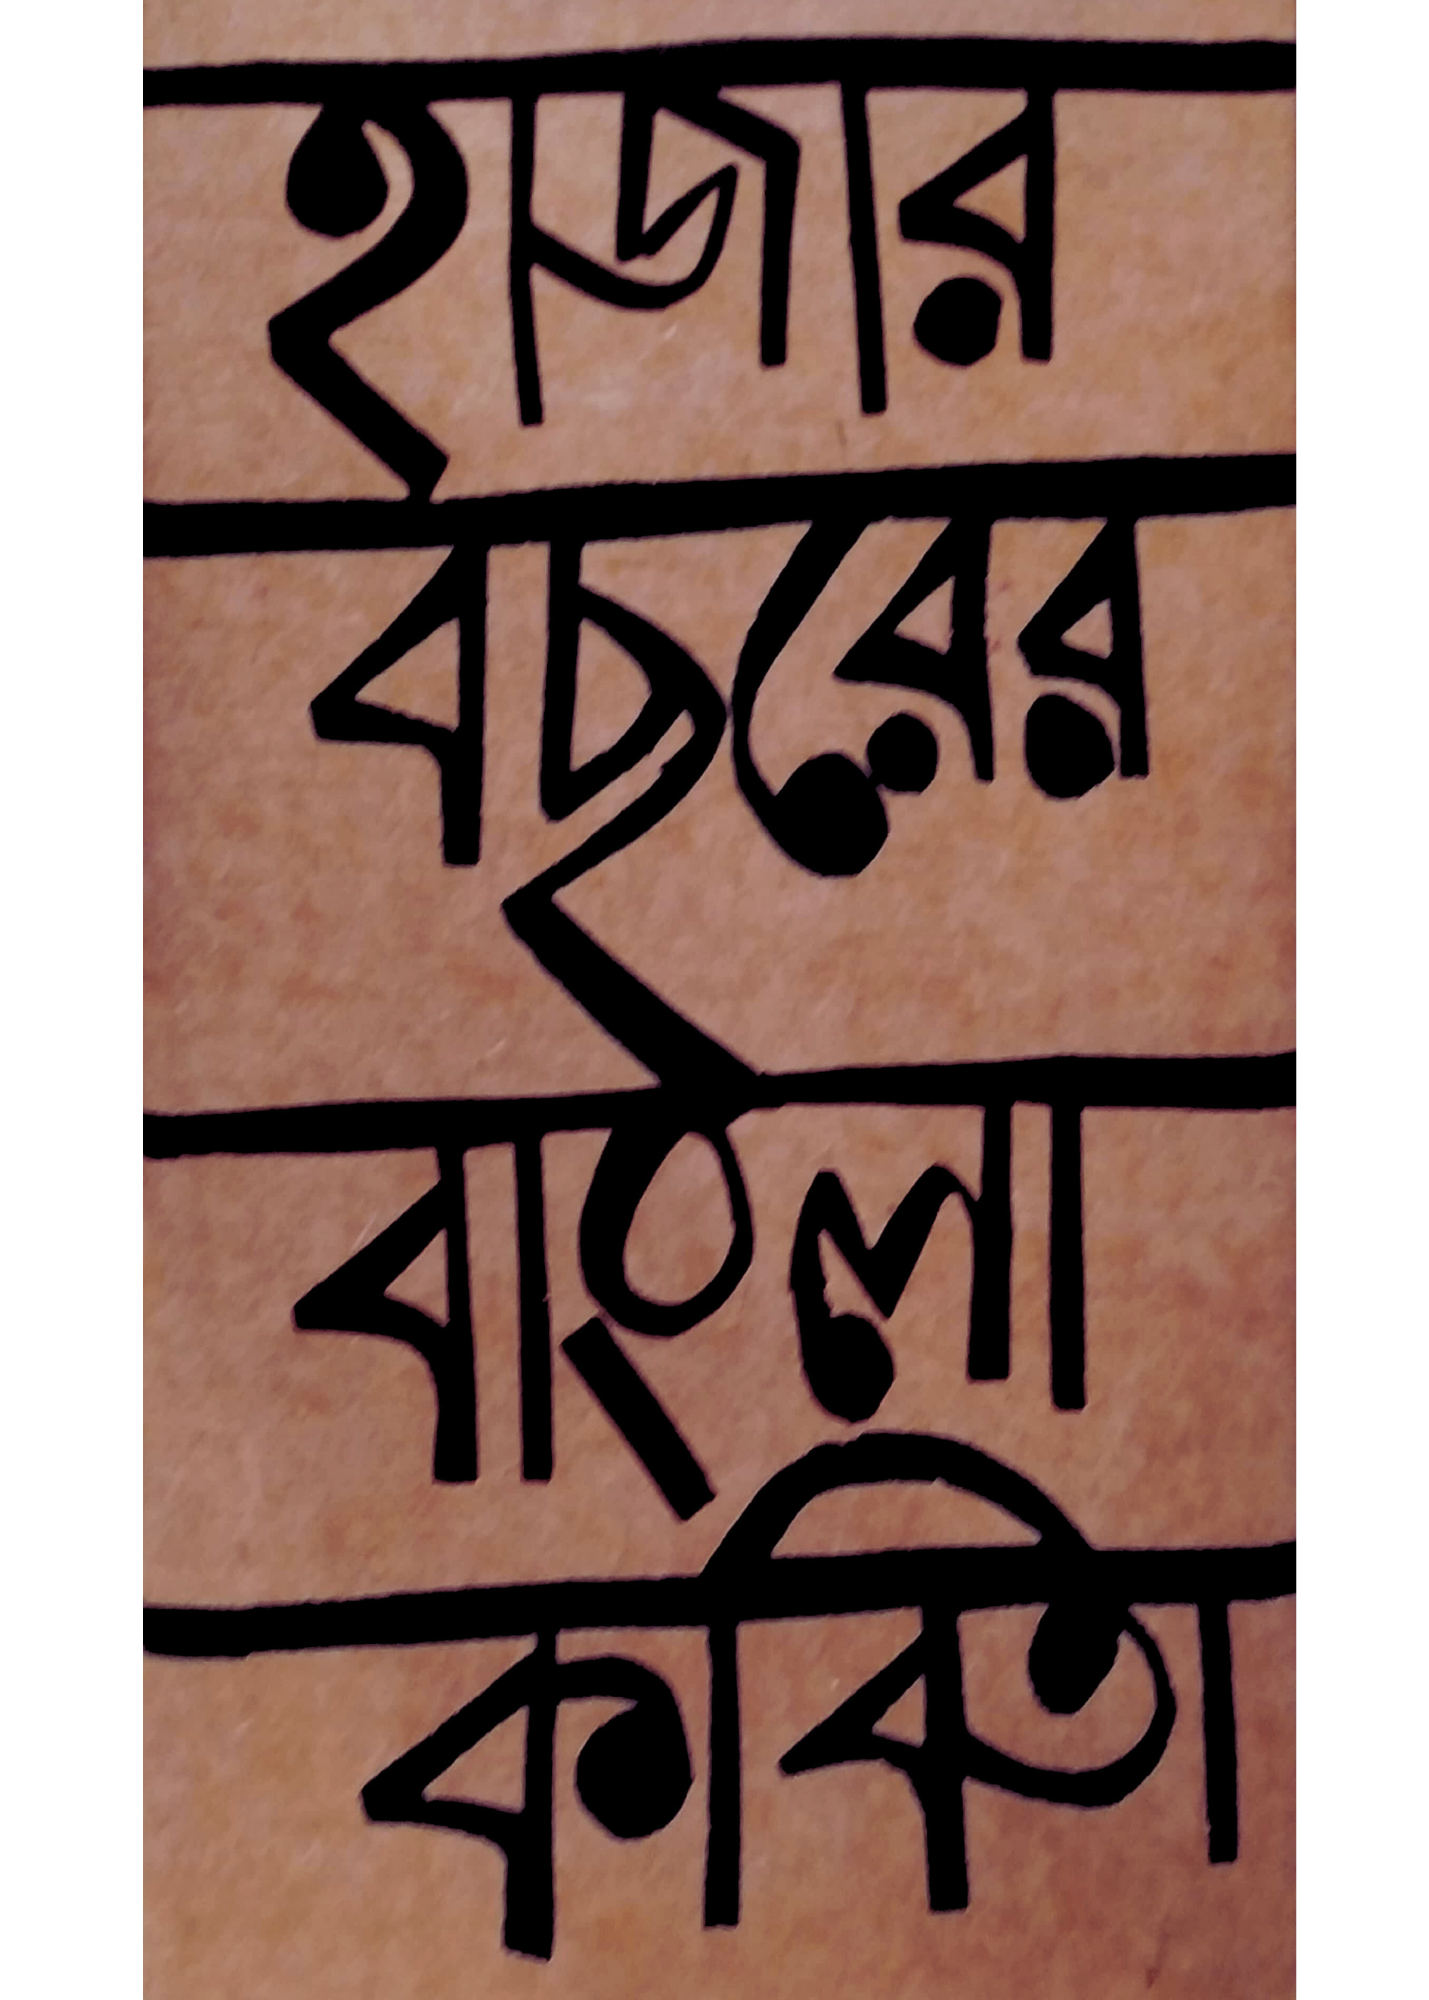 হাজার
বছরের
বাংলা
কবিতা